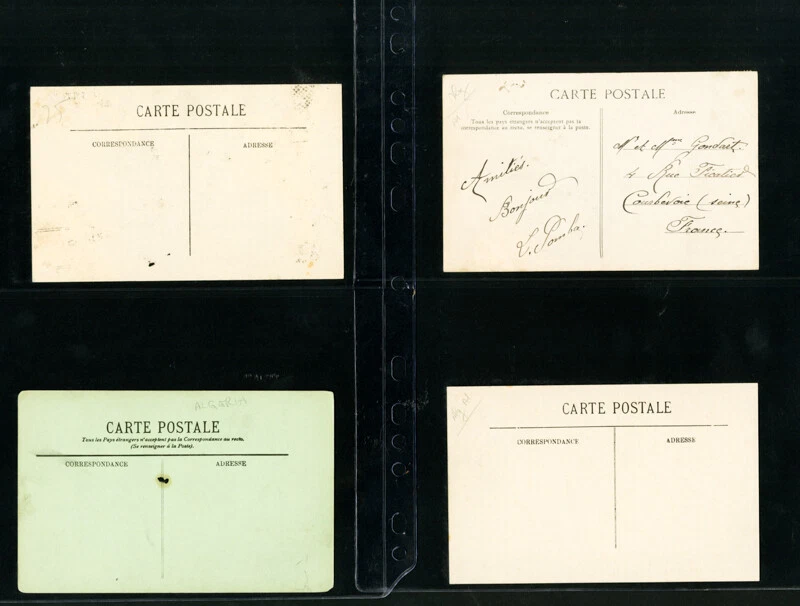 CARTE POSTALE
CORRESPONDANCE
ADRESSE
CARTE POSTALE
Correspondance
Tous les pays étrangers n'acceptent pas la
correspondance au recto, se renseigner à la poste.
Adresse
Amitiés.
Bonjour
M et Mme
4 Rue
Courbevoie (seine)
France
CARTE POSTALE
Tous les Pays étrangers n'acceptent pas la Correspondance au recto.
(Se renseigner à la Poste).
CORRESPONDANCE
ADRESSE
CARTE POSTALE
CORRESPONDANCE
ADRESSE